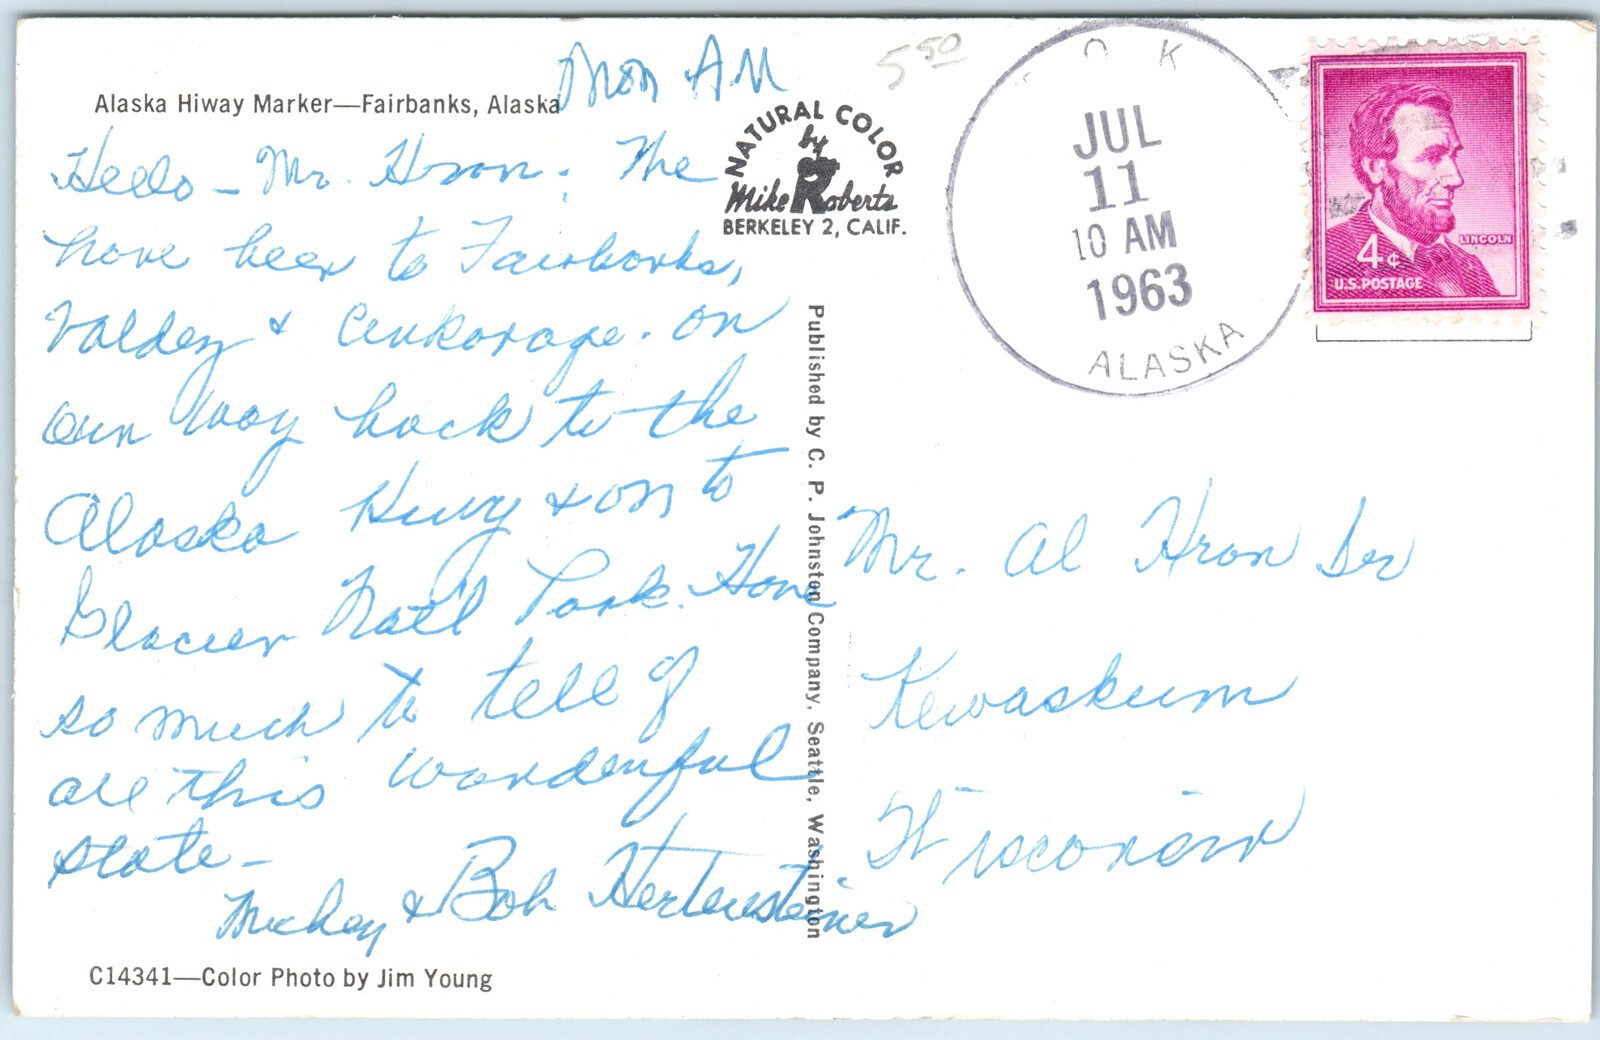 Mon AM
Alaska Hiway Marker—Fairbanks, Alaska
Hello - Mr. Hron: The
have been to Fairbanks,
Valdez & Ankorage. On
our way back to the
Alaska Hwy & on to
Glacier Nat'l Park. Have
so much to tell of
all this wonderful
state -
Mickey & Bob Hertensteiner
C14341—Color Photo by Jim Young
NATURAL COLOR
by
Mike Roberts
BERKELEY 2, CALIF.
Published by C. P. Johnston Company, Seattle, Washington
5 50
OK
JUL
11
10 AM
1963
ALASKA
LINCOLN
4¢
U.S. POSTAGE
Mr. Al Hron Ser
Kewaskum
Wisconsin